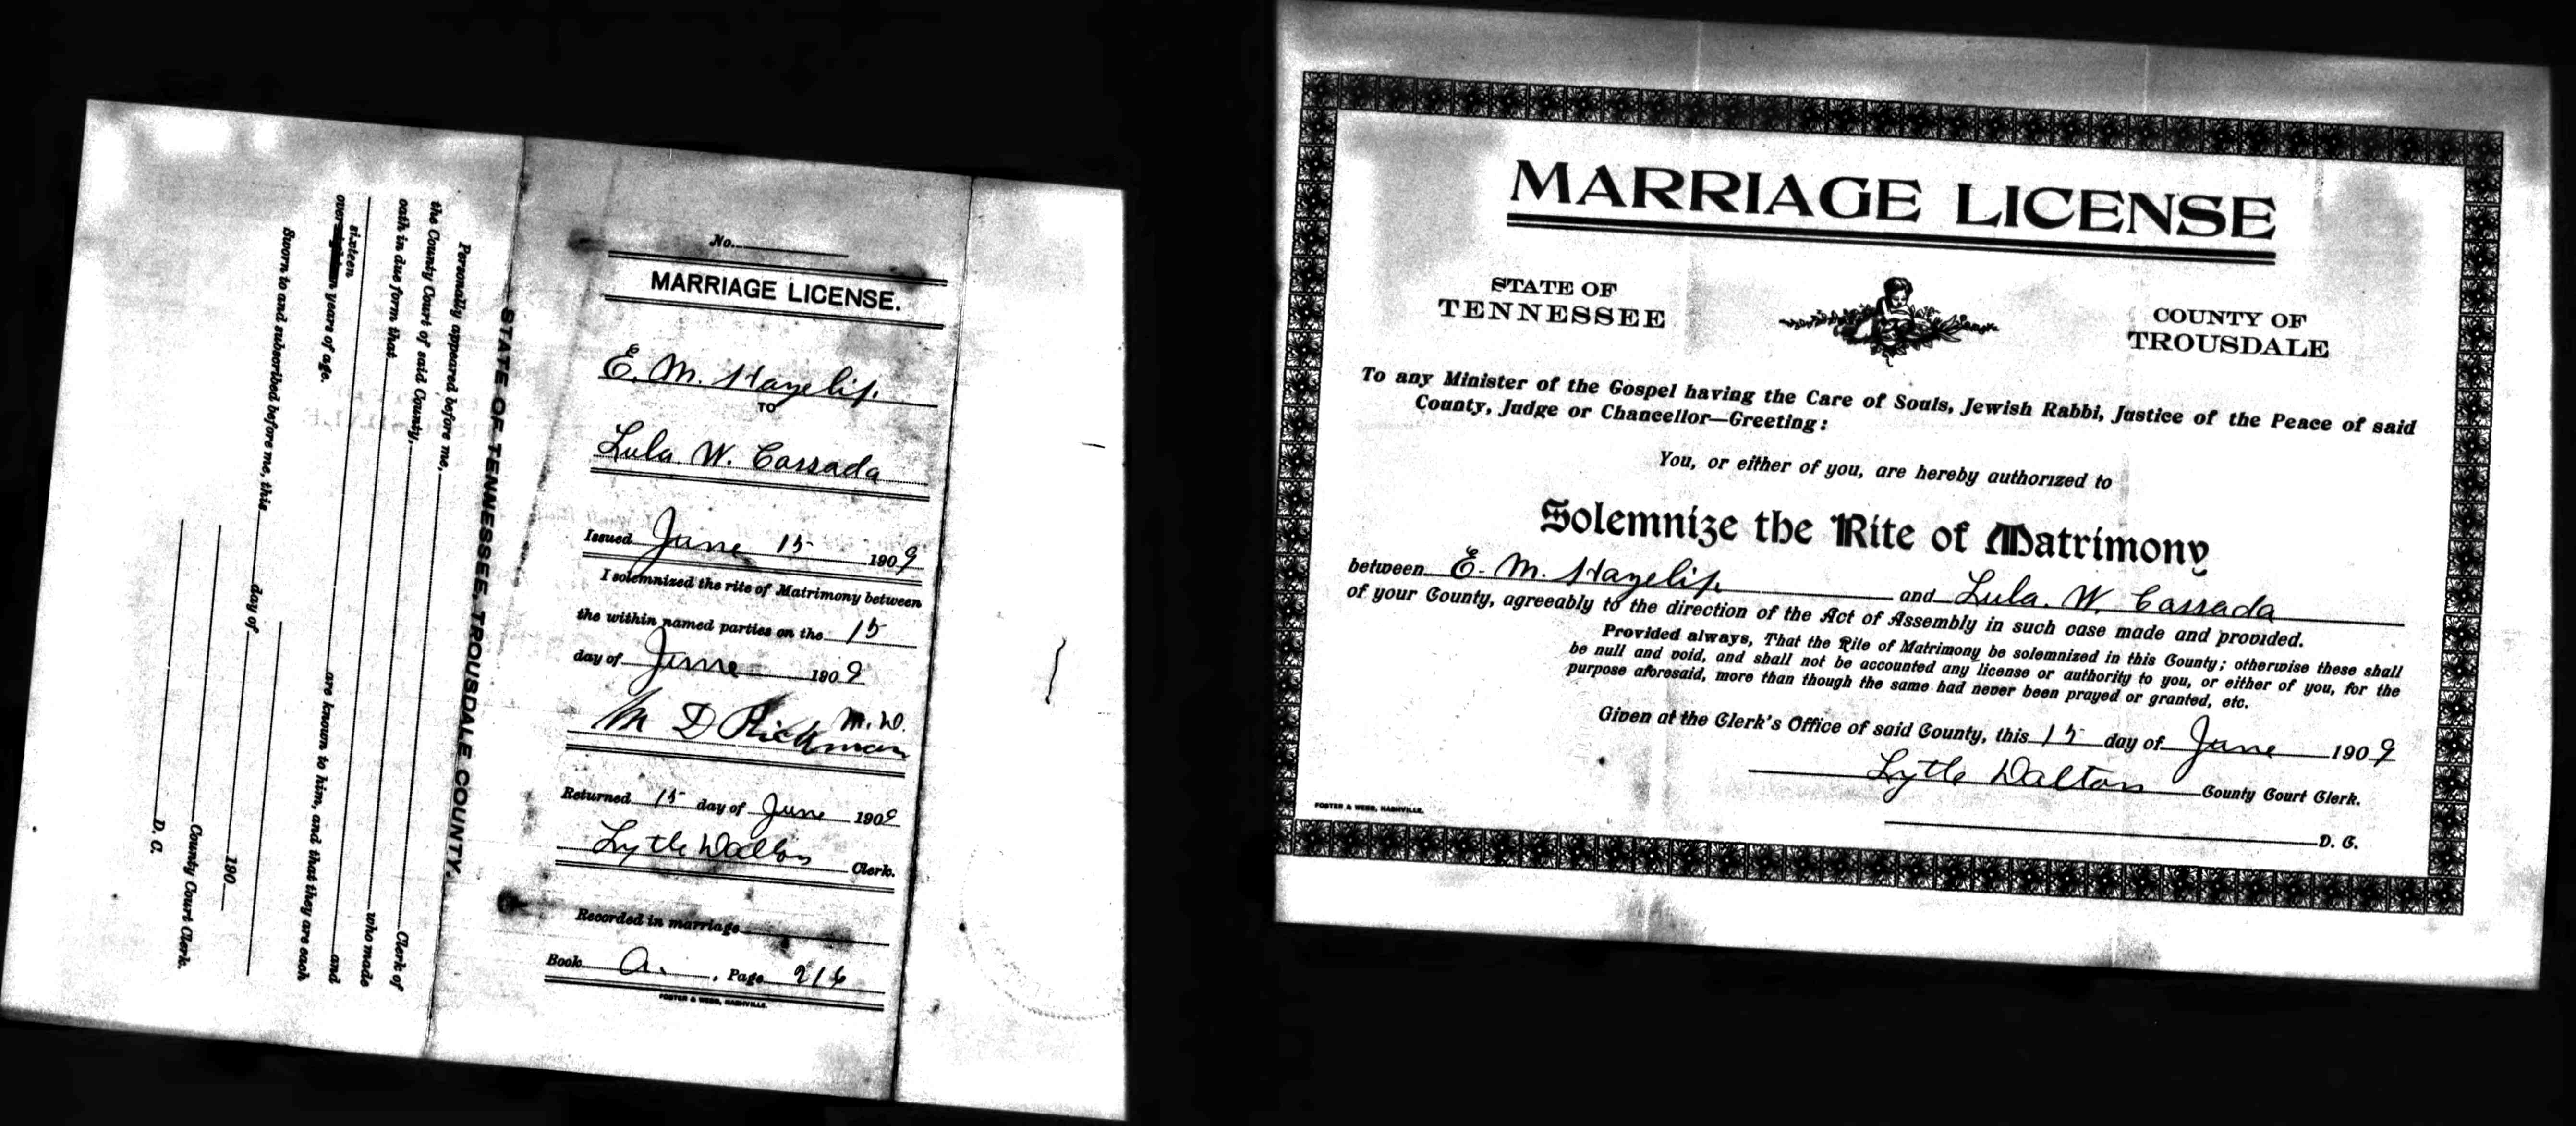 No.
MARRIAGE LICENSE.
E. M. Hazelip.
TO
Lula. W. Cassada
Issued June 15 1909
I solemnized the rite of Matrimony between
the within named parties on the 15
day of June 1909
M D Rickman M. D.
Returned 15 day of June 1909
Lytle Dalton Clerk.
Recorded in marriage
Book A. , Page 216
FOSTER & WEBB, NASHVILLE.
STATE OF TENNESSEE, TROUSDALE COUNTY.
Personally appeared before me, Clerk of
the County Court of said County, who made
oath in due form that and
are known to him, and that they are each
sixteen
over years of age.
Sworn to and subscribed before me, this day of 190
County Court Clerk.
D. C.
MARRIAGE LICENSE
STATE OF
TENNESSEE
COUNTY OF
TROUSDALE
To any Minister of the Gospel having the Care of Souls, Jewish Rabbi, Justice of the Peace of said
County, Judge or Chancellor—Greeting:
You, or either of you, are hereby authorized to
Solemnize the Rite of Matrimony
between E. M. Hazelip and Lula. W. Cassada
of your County, agreeably to the direction of the Act of Assembly in such case made and provided.
Provided always, That the Rite of Matrimony be solemnized in this County; otherwise these shall
be null and void, and shall not be accounted any license or authority to you, or either of you, for the
purpose aforesaid, more than though the same had never been prayed or granted, etc.
Given at the Clerk's Office of said County, this 15 day of June 1909
Lytle Dalton County Court Clerk.
D. C.
FOSTER & WEBB, NASHVILLE.